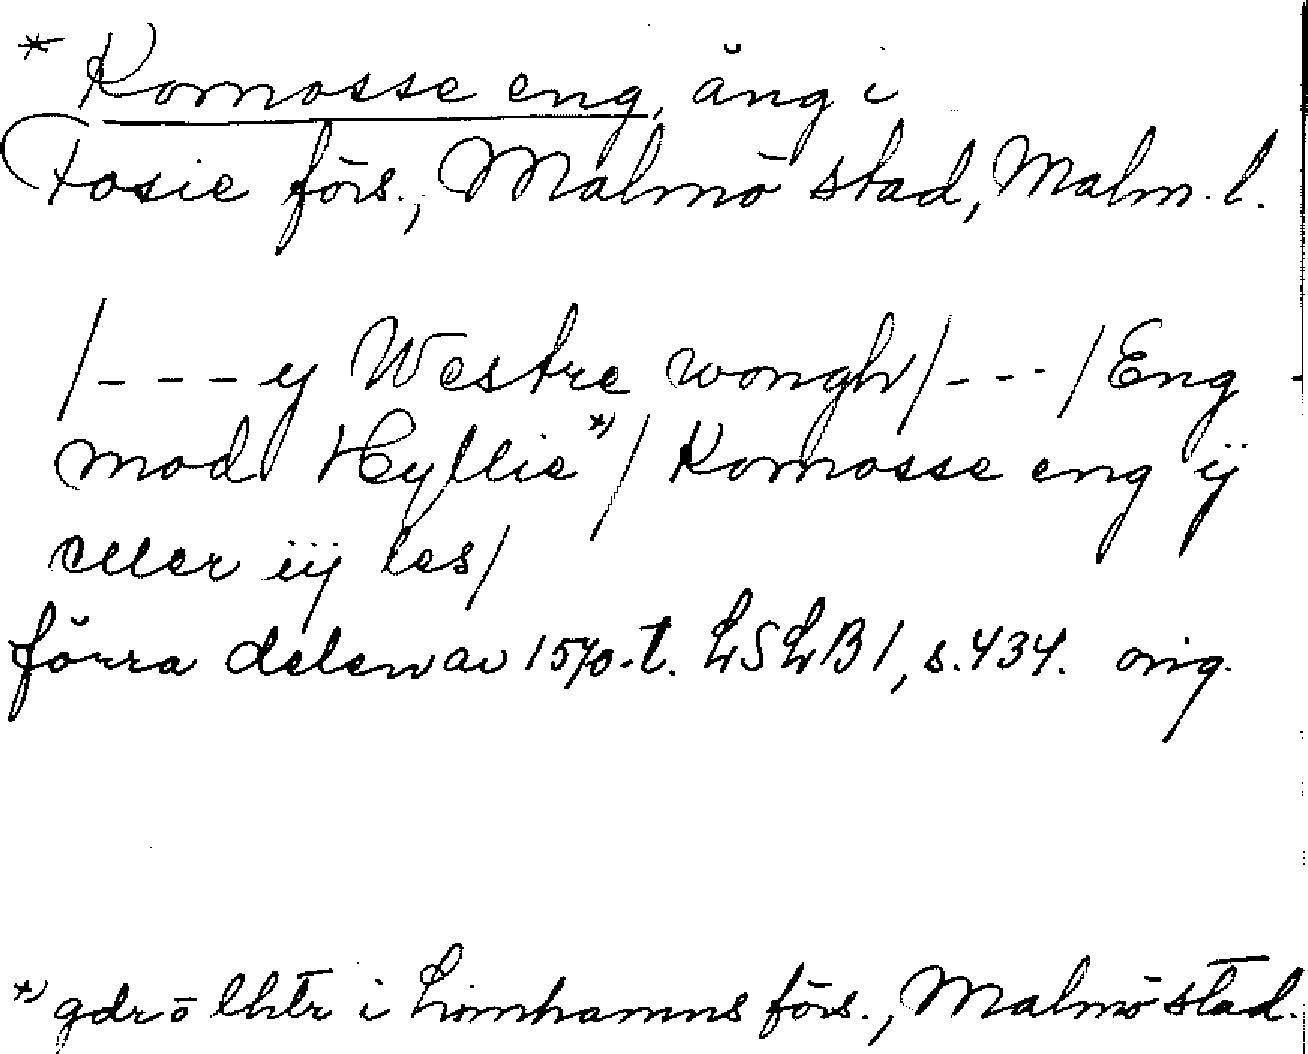 * Komosse eng, äng i
Fosie förs., Malmö stad, Malm. l.
/- - - y Westre wongh/- - - /Eng
mod Hyllie*)/ Komosse eng ij
eller iij les/
förra delen av 1570-t. LSLB 1, s. 434. orig.
*) gdr o lhtr i Limhamns förs., Malmö stad.